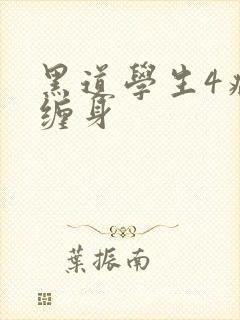 黑道學生4
缠身
葉振南